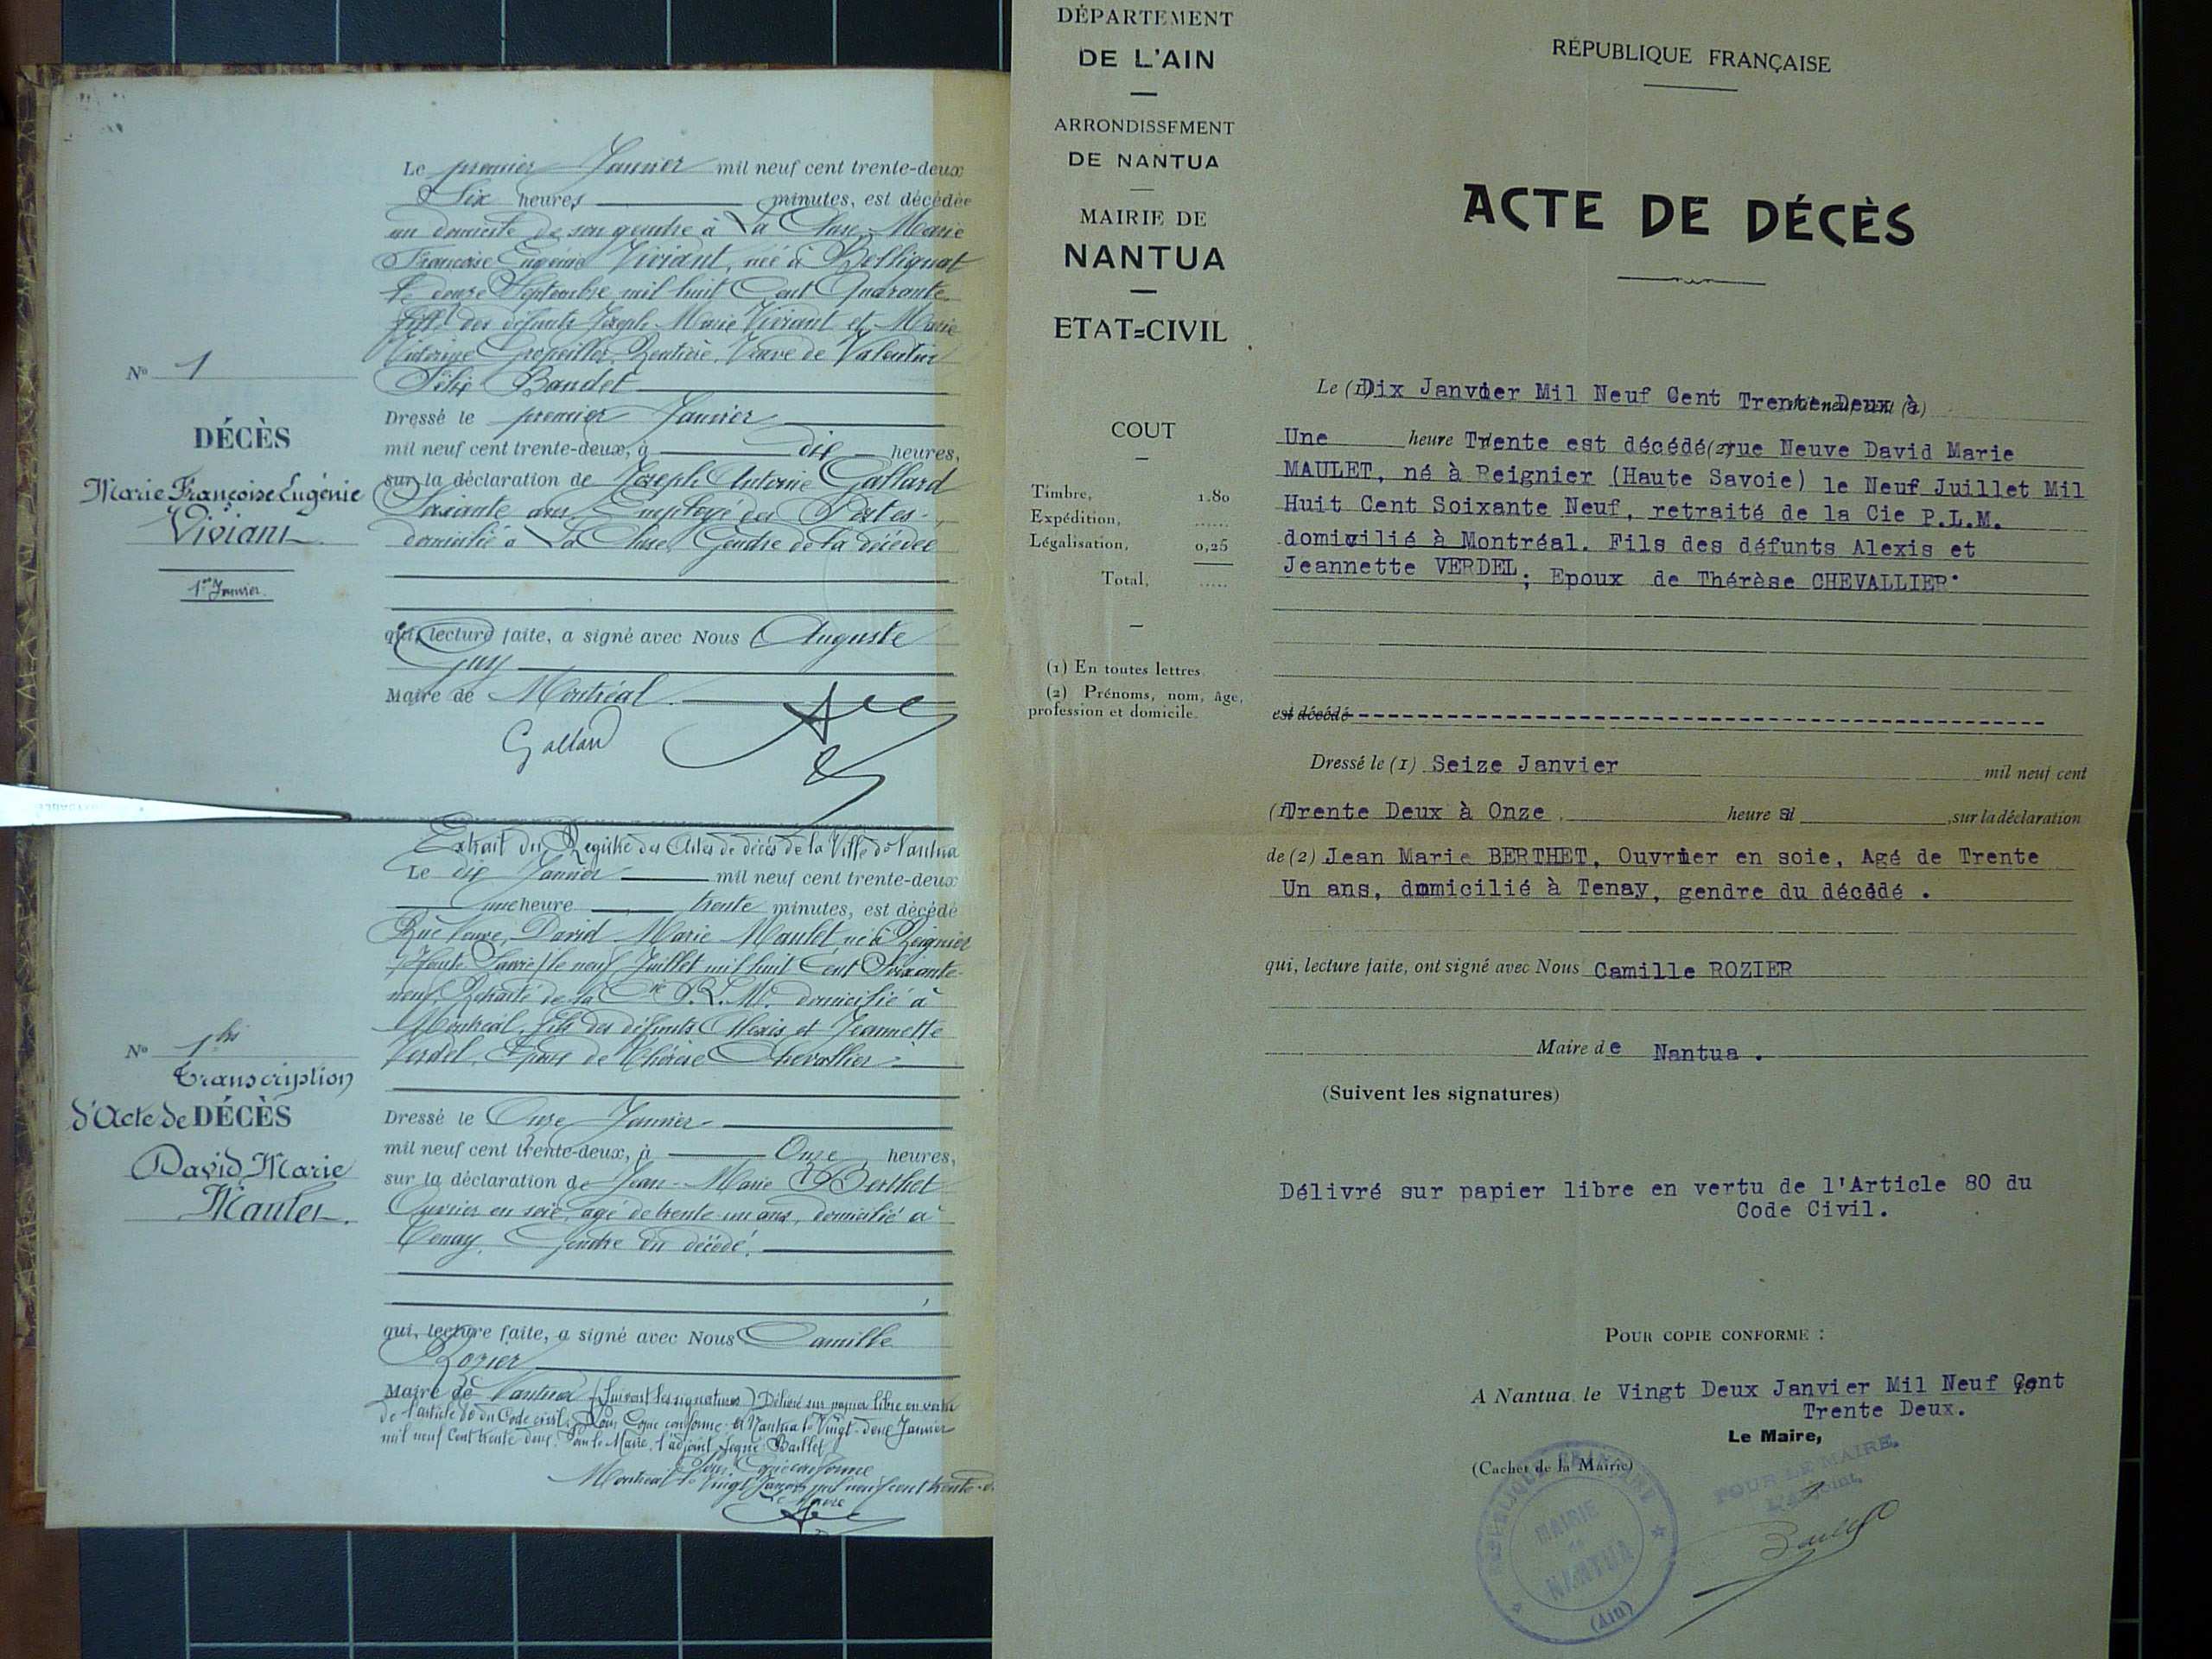 Le premier Janvier mil neuf cent trente-deux
Six heures minutes, est décédée
au domicile de son gendre à La Cluse, Marie
Françoise Eugénie Viviant, née à Bellignat
le douze Septembre mil huit Cent Quarante
fille des défunts Joseph Marie Viviant et Marie
Rentière, Veuve de Valentin
Félix Baudet
Nº 1
DÉCÈS
Marie Françoise Eugénie
Viviant
1er Janvier
Dressé le premier Janvier
mil neuf cent trente-deux, à dix heures,
sur la déclaration de Joseph Antoine Galland
Soixante ans, Employé des Postes
domicilié à La Cluse, Gendre de la décédée
qui, lecture faite, a signé avec Nous Auguste
Guy
Maire de Montréal
Galland
Extrait du Registre des Actes de décès de la Ville de Nantua
Le dix Janvier mil neuf cent trente-deux
une heure trente minutes, est décédé
Rue Neuve, David Marie Maulet né à Reignier
Haute Savoie, le neuf Juillet mil huit Cent Soixante
neuf, Retraité de la Cie P.L.M. domicilié à
Montréal, fils des défunts Alexis et Jeannette
Verdel, Epoux de Thérèse Chevallier
Nº 1 bis
Transcription
d'Acte de DÉCÈS
David Marie
Maulet
Dressé le Onze Janvier
mil neuf cent trente-deux, à Onze heures,
sur la déclaration de Jean-Marie Berthet
Ouvrier en soie, agé de trente un ans, domicilié à
Tenay, Gendre du décédé.
qui, lecture faite, a signé avec Nous Camille
Rozier
Maire de Nantua (Suivent les signatures) Délivré sur papier libre en vertu
de l'article 80 du Code civil. Pour Copie conforme. A Nantua le Vingt-deux Janvier
mil neuf Cent trente deux. Pour le Maire, l'adjoint signé Baillet
Pour Copie conforme
Montréal le vingt Janvier mil neuf cent trente-d
Le Maire
DÉPARTEMENT
DE L'AIN
ARRONDISSEMENT
DE NANTUA
MAIRIE DE
NANTUA
ETAT=CIVIL
COUT
Timbre, 1.80
Expédition, ......
Légalisation, 0,25
Total, .....
(1) En toutes lettres.
(2) Prénoms, nom, âge,
profession et domicile.
RÉPUBLIQUE FRANÇAISE
ACTE DE DÉCÈS
Le (1) Dix Janvier Mil Neuf Cent Trente Deux à
Une heure Trente est décédé (2) rue Neuve David Marie
MAULET, né à Reignier (Haute Savoie) le Neuf Juillet Mil
Huit Cent Soixante Neuf, retraité de la Cie P.L.M.
domicilié à Montréal. Fils des défunts Alexis et
Jeannette VERDEL; Epoux de Thérèse CHEVALLIER.
est décédé
Dressé le (1) Seize Janvier mil neuf cent
(1) Trente Deux à Onze heure sur la déclaration
de (2) Jean Marie BERTHET, Ouvrier en soie, Agé de Trente
Un ans, domicilié à Tenay, gendre du décédé.
qui, lecture faite, ont signé avec Nous Camille ROZIER
Maire de Nantua.
(Suivent les signatures)
Délivré sur papier libre en vertu de l'Article 80 du
Code Civil.
POUR COPIE CONFORME :
A Nantua, le Vingt Deux Janvier Mil Neuf Cent
Trente Deux.
Le Maire,
(Cachet de la Mairie)
POUR LE MAIRE.
L'Adjoint,
RÉPUBLIQUE FRANÇAISE
MAIRIE
de
NANTUA
(Ain)